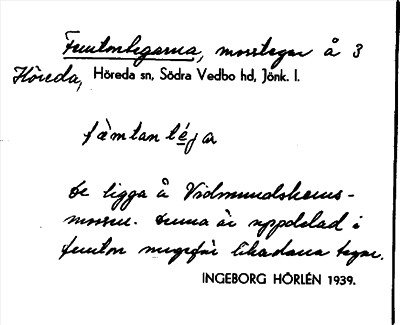 Femtontegarna, mosstegar å 3
Höreda, Höreda sn, Södra Vedbo hd, Jönk. l.
fæmtan téja
De ligga å Vidmundskärrs-
mossen. Denna är uppdelad i
femton ungefär likadana tegar.
INGEBORG HÖRLÉN 1939.